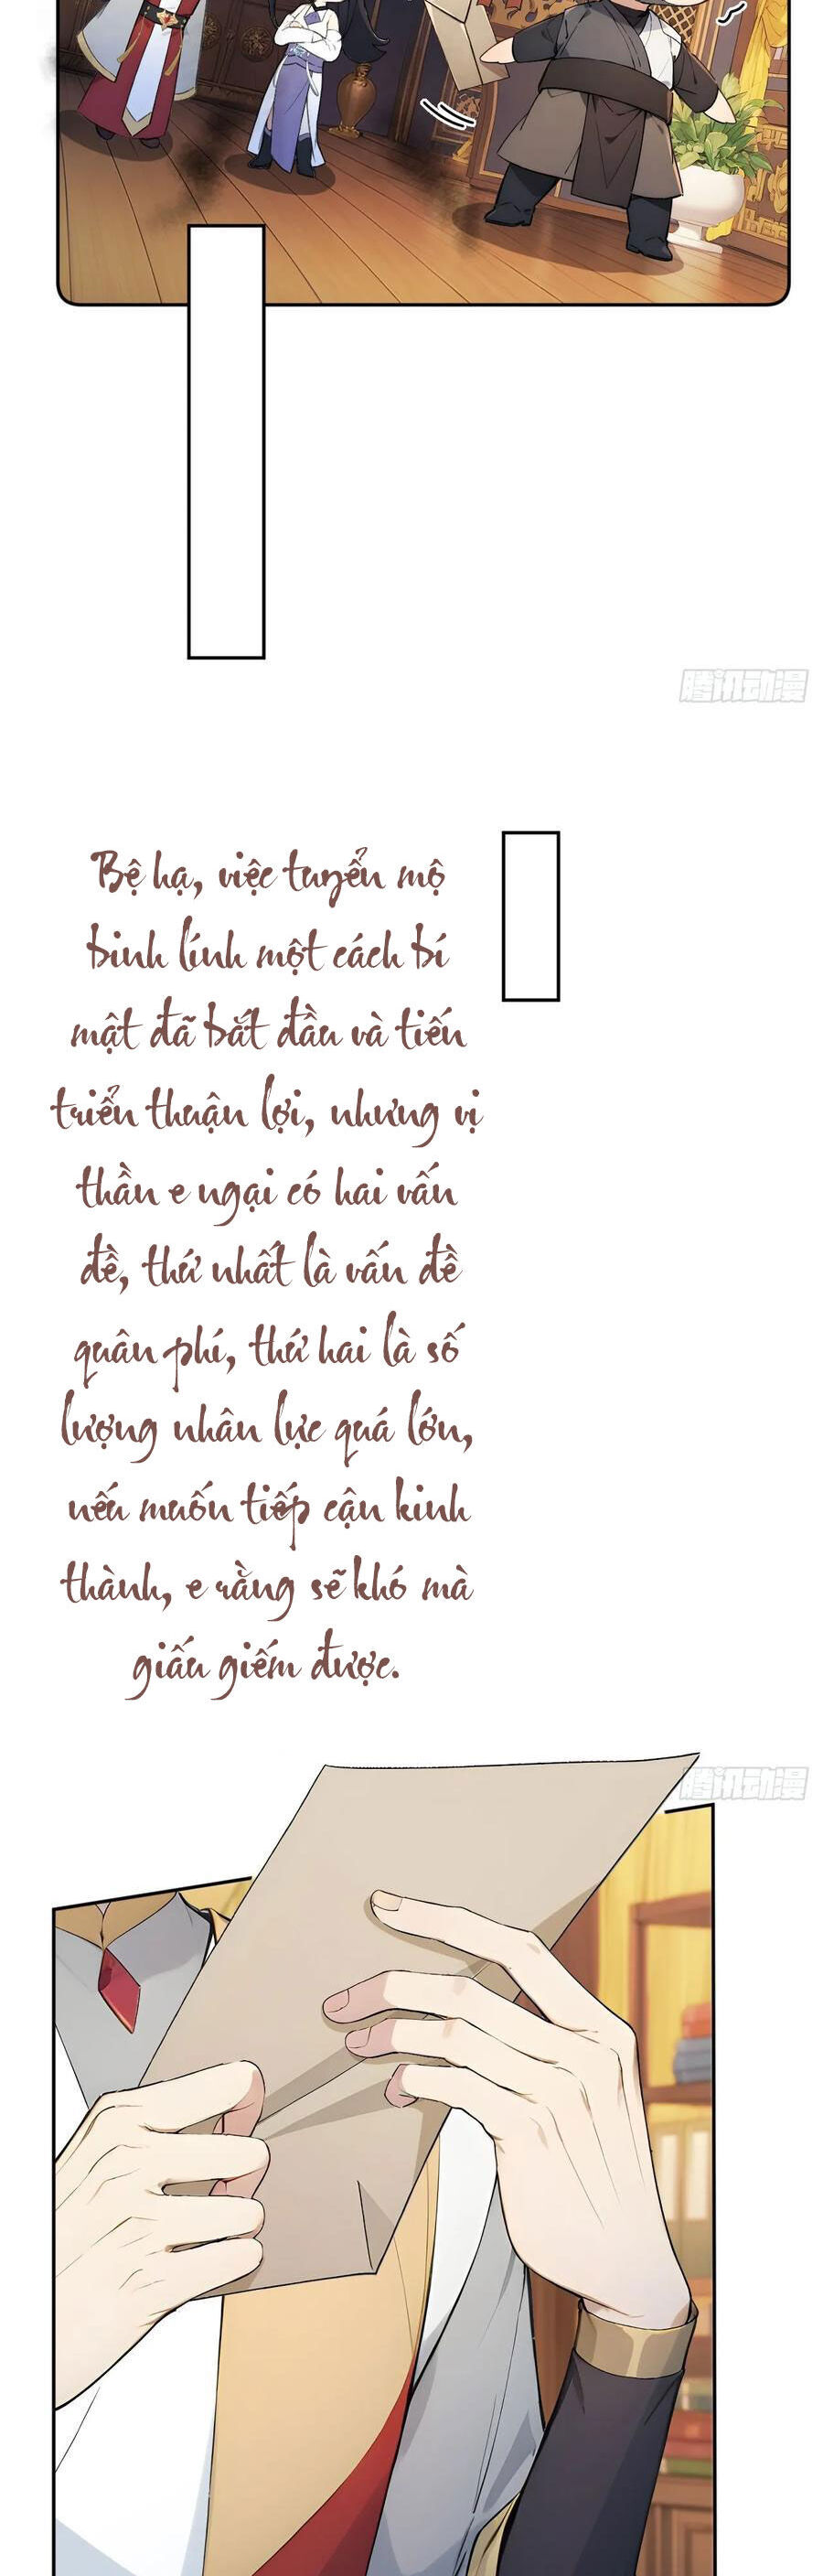 腾讯动漫
Bệ hạ, việc tuyển mộ
binh lính một cách bí
mật đã bắt đầu và tiến
triển thuận lợi, nhưng vị
thần e ngại có hai vấn
đề, thứ nhất là vấn đề
quân phí, thứ hai là số
lượng nhân lực quá lớn,
nếu muốn tiếp cận kinh
thành, e rằng sẽ khó mà
giấu giếm được.
腾讯动漫